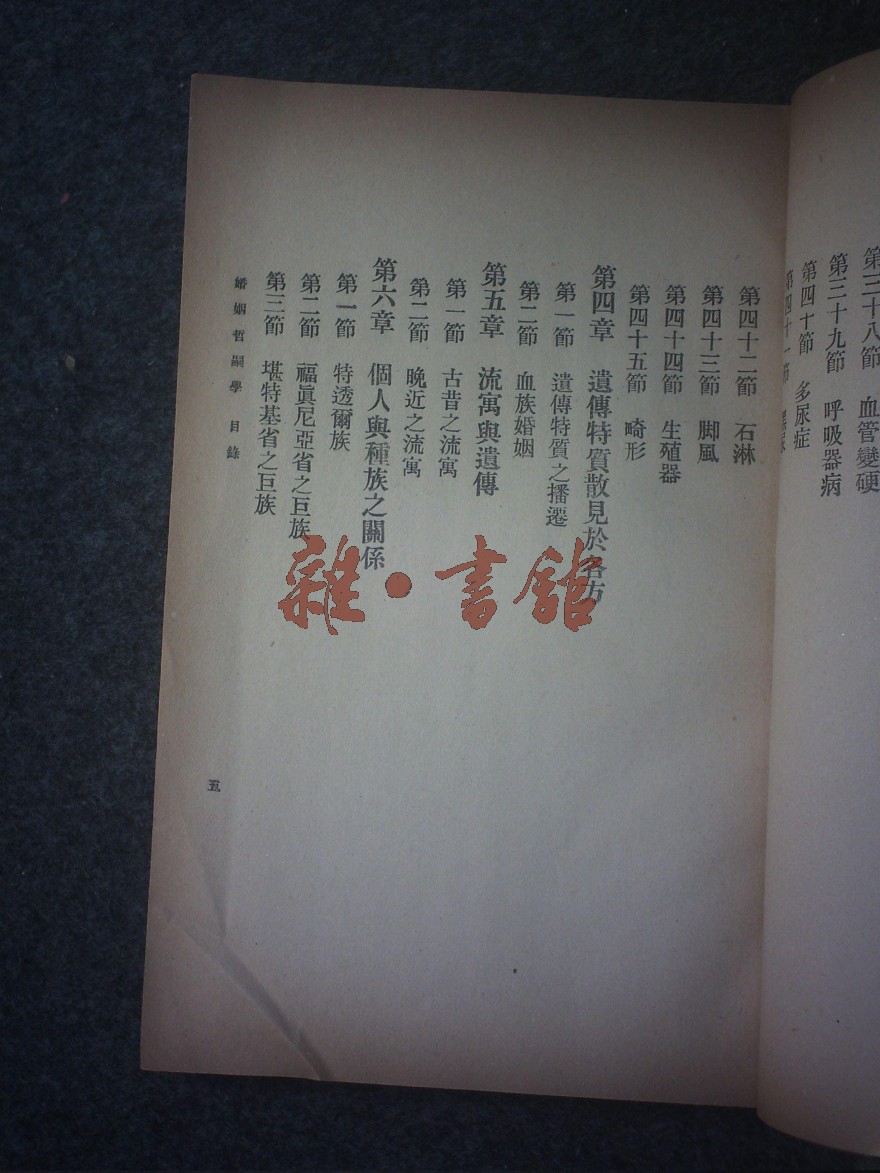 第三十八節 血管變硬
第三十九節 呼吸器病
第四十節 多尿症
第四十一節
第四十二節 石淋
第四十三節 脚風
第四十四節 生殖器
第四十五節 畸形
第四章 遺傳特質散見於各方
第一節 遺傳特質之播遷
第二節 血族婚姻
第五章 流寓與遺傳
第一節 古昔之流寓
第二節 晚近之流寓
第六章 個人與種族之關係
第一節 特透爾族
第二節 福眞尼亞省之巨族
第三節 堪特基省之巨族
婚姻哲嗣學 目錄
五
雜·書館